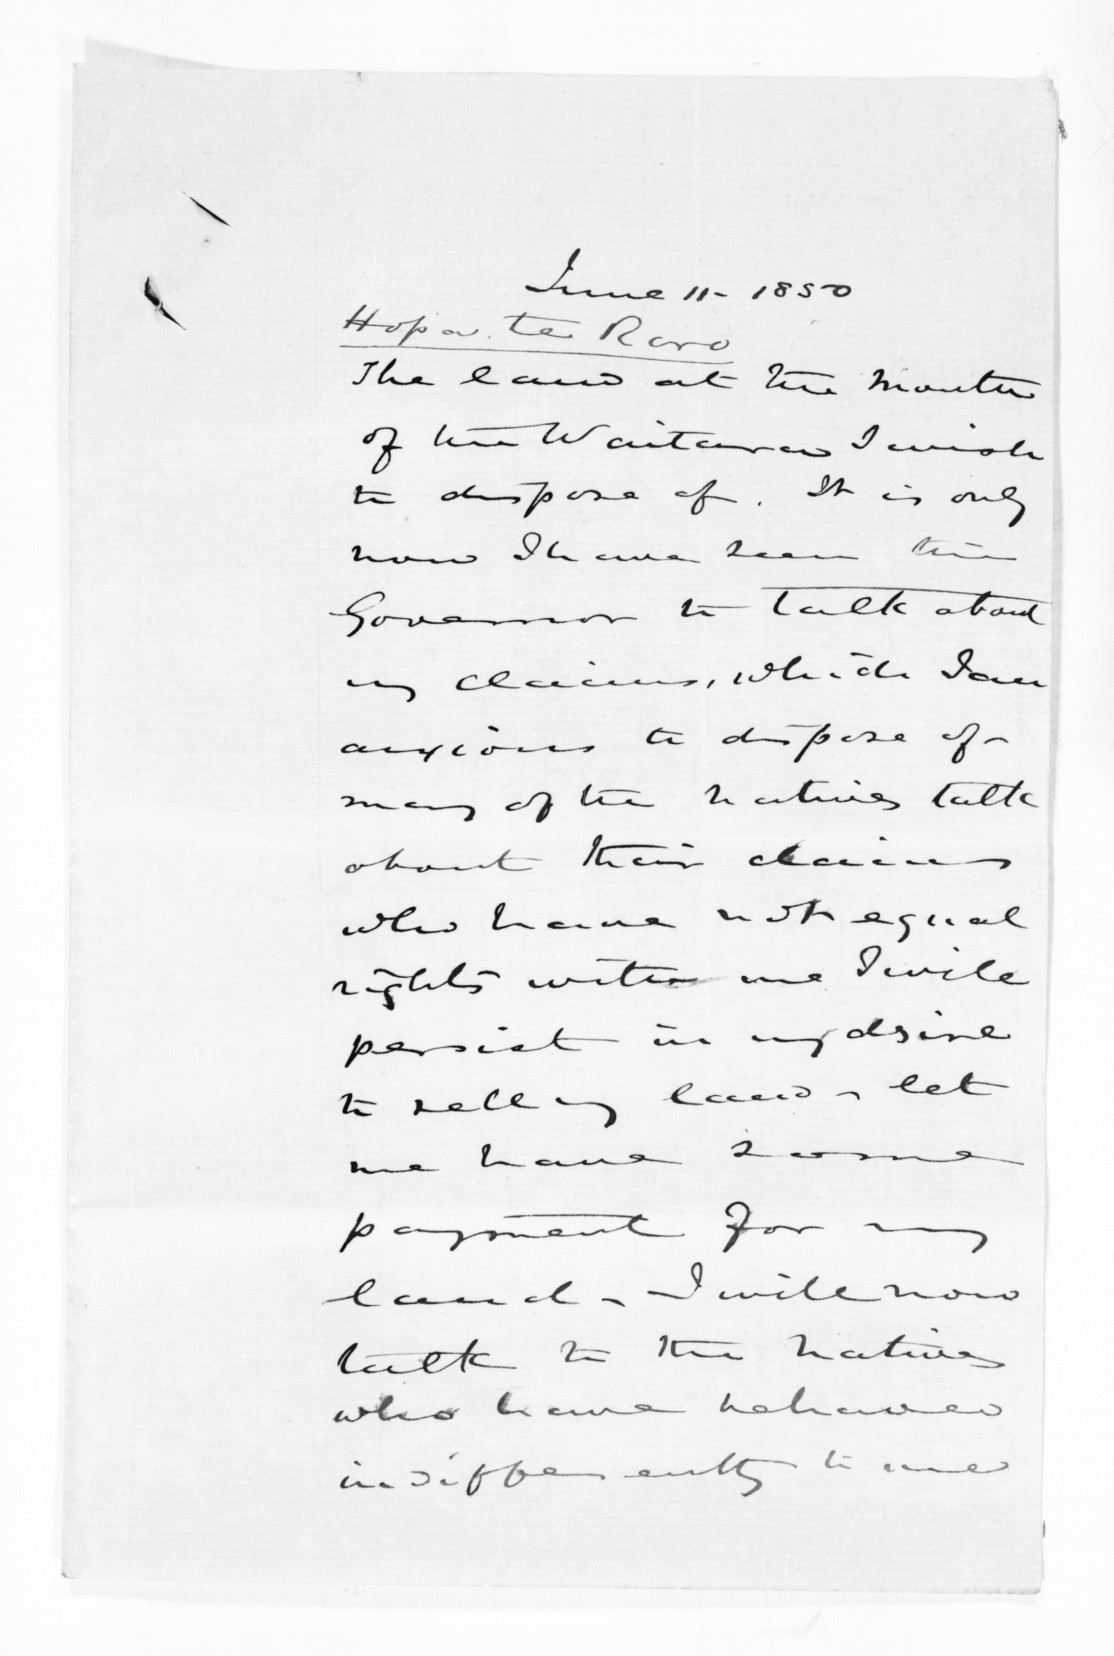 June 11 - 1850
Hopa te Roro
The land at the mouth
of the Waitara I wish
to dispose of. It is only
now I have seen the
Governor to talk about
my claims, which I am
anxious to dispose of -
many of the natives talk
about their claims
who have not equal
rights with me I will
persist in my dsire
to sell my land - let
me have some
payment for my
land - I will now
talk to the natives
who have behaved
indifferently to me